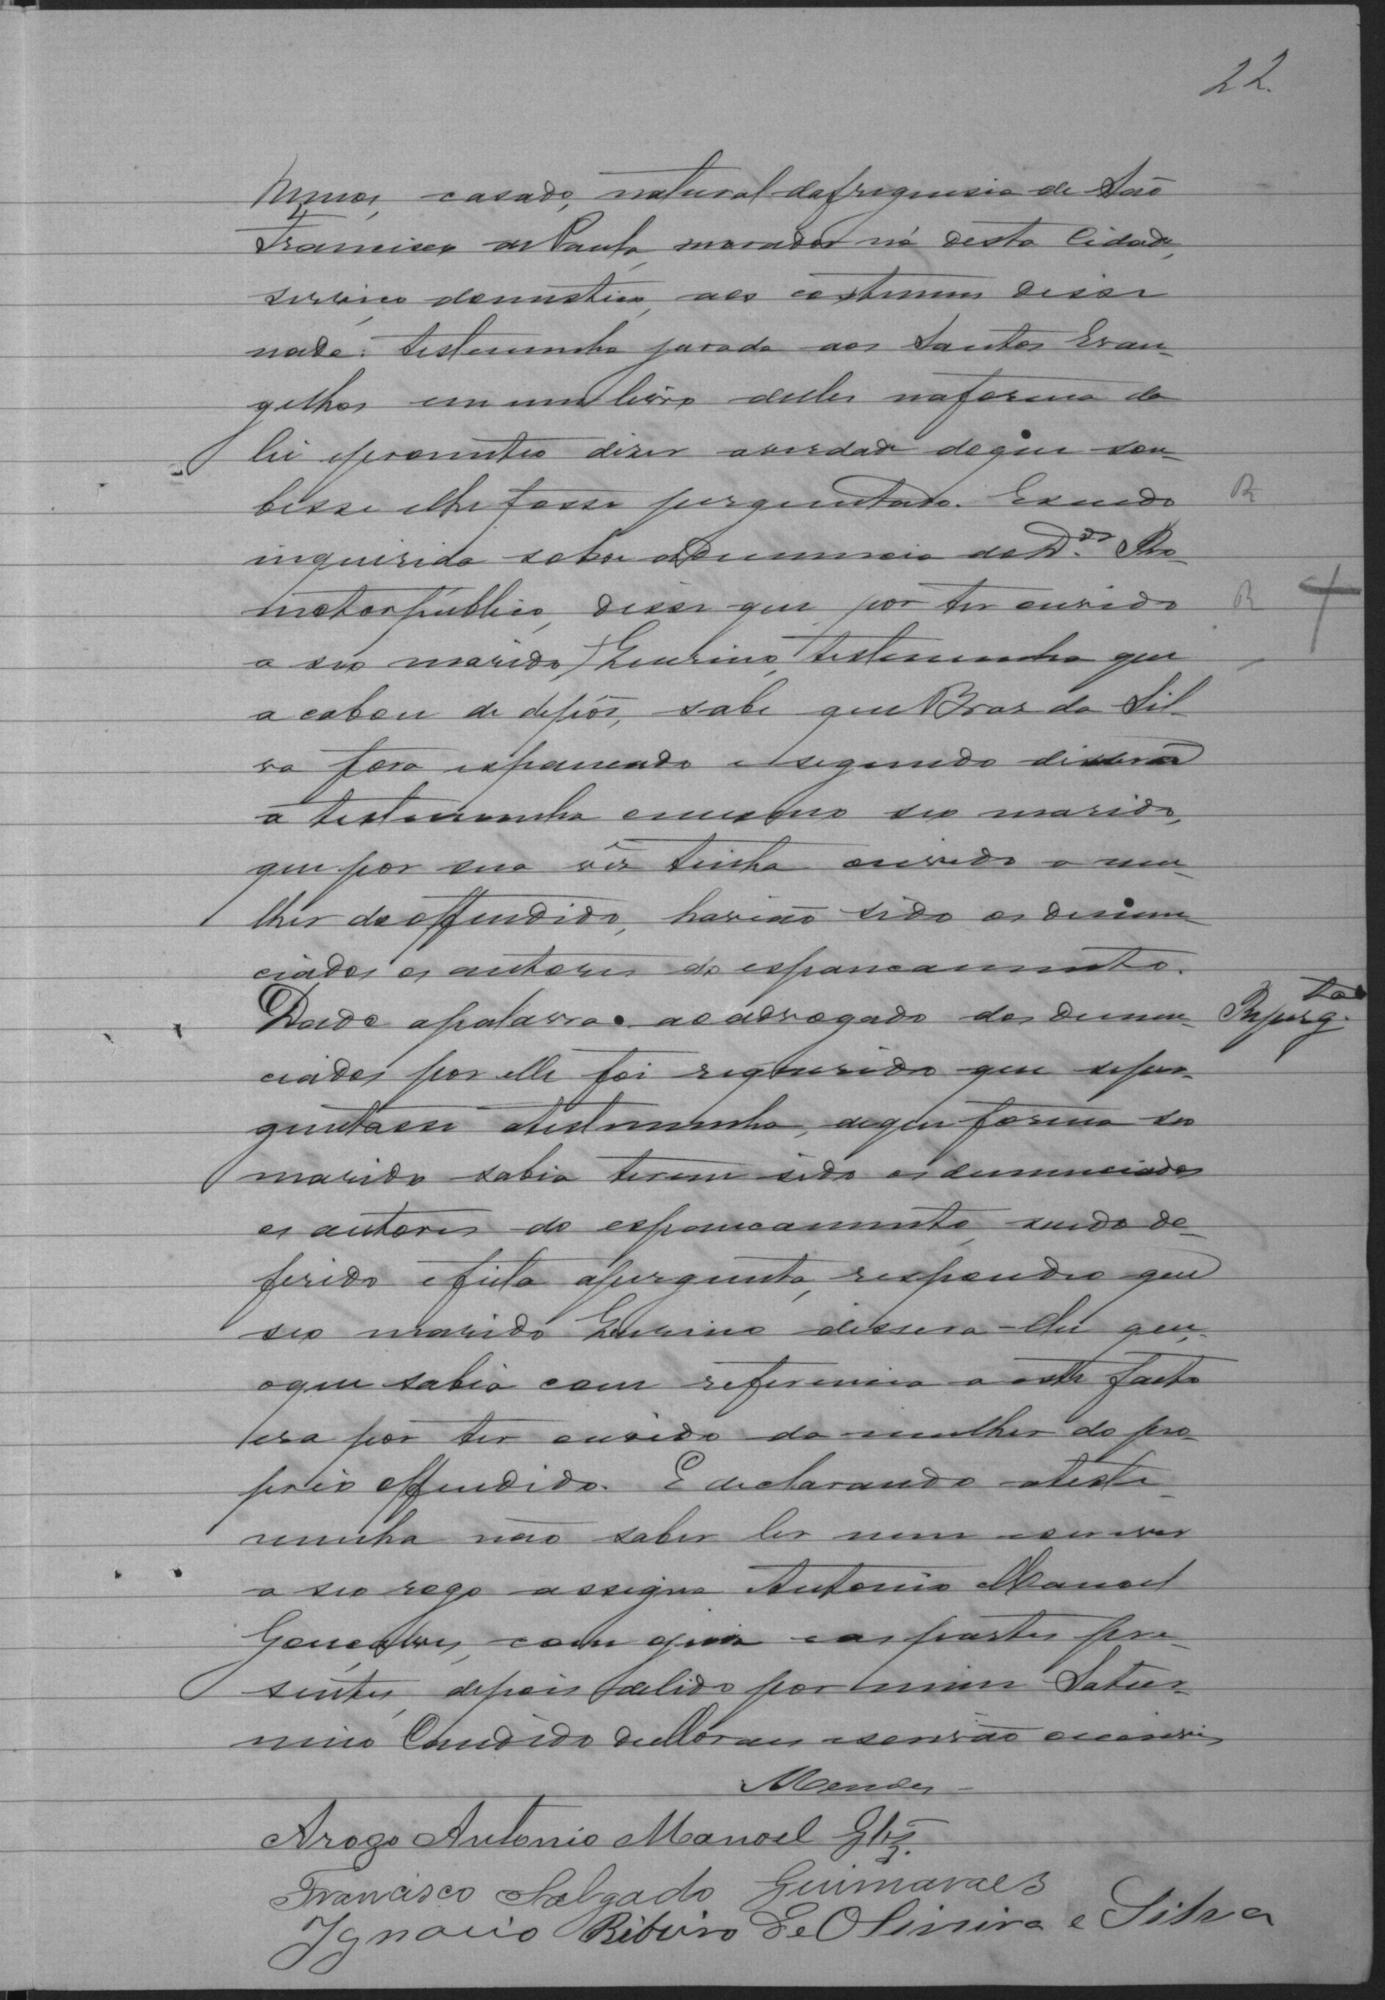 22.
annos, casada, natural da freguesia de São
Francisco de Paula, morador na desta Cidade,
serviço domestico, aos costumes disse
nada. testemunha jurada aos Santos Evan-
gelhos em um livro delles na forma da
lei e prometteo dizer a verdade do que sou-
besse e lhe fosse perguntado. E sendo
inquirida sobre a Denuncia do Dr. Pro-
motor publico, disse que por ter ouvido
a seo marido, testemunha que
acabou de depôr, sabe que Braz da Sil-
va fora espancado e segundo dissera
a testemunha o mesmo seo marido,
que por sua vêz tinha ouvido a mu-
lher do offendido, havião sido os denun-
ciados os autores do espancamento.
Dada a palavra ao advogado dos denun-
Reperg.tas
ciados por elle foi requerido que reper-
guntasse a testemunha, de que forma seo
marido sabia terem sido os denunciados
os autores do espancamento, sendo de-
ferido e feita a pergunta, respondeo que
seo marido dissera-lhe que,
o que sabia com referencia a este facto
era por ter ouvido da mulher do pro-
prio offendido. E declarando a teste-
munha não saber ler nem escrever
a seo rogo assigna Antonio Manoel
Gonçalves, com o juiz e as partes pre-
sentes, depois de lido por mim Satur-
nino Candido de Moraes escrivão o escrevi
Mendes
Arogo Antonio Manoel Glz.
Francisco Salgado Guimaraes
Ignacio Ribeiro de Oliveira e Silva